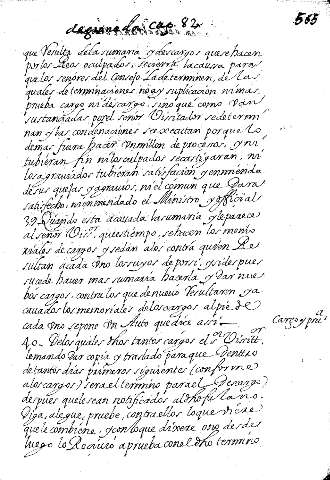 565
cap. 82
que resulta de la sumaria y descargos que se hacen
por los Reos culpados, se cierra la causa para
que los señores del Consejo la determinen, de las
quales determinaciones no ay suplicacion ni mas
prueba cargo ni descargo, sino que como van
sustanciadas por el señor Visitador se determi
nan y las condenaciones se executan porque lo
demas fuera hacer un millon de procesos, y ni
tubieran fin ni los culpados se castigaran, ni
los agraviados tubieran satisfacion y enmienda
de sus quejas y agravios, ni el comun que dara
satisfecho ni enmendado el Ministro y official
39 quando esta acavada la sumaria y le parece
al señor Vis.or ques tiempo, se hacen los memo
riales de cargos y se dan a los contra quien Re
sultan a cada uno los suyos de por si, y si des pues
sucede haver mas sumaria hacerla y dar nue
bos cargos, contra los que de nuevo resultaren ya
cavados los memoriales de los cargos al pie de
cada uno se pone un Auto que dice assi
40 De los quales dhos tantos cargos el s.or Visit.or
le mando dar copia y traslado para que dentro
de tantos dias primeros siguientes (conforme
a los cargos) sera el termino para el Descargo
despues que le sean notificados al dho fulano.
Diga, alegue, pruebe, contra ellos lo que viere
que le combiene, y con lo que dixere o no desde
luego lo Reciuio a prueba con el dho termino
Cargo y prue.a